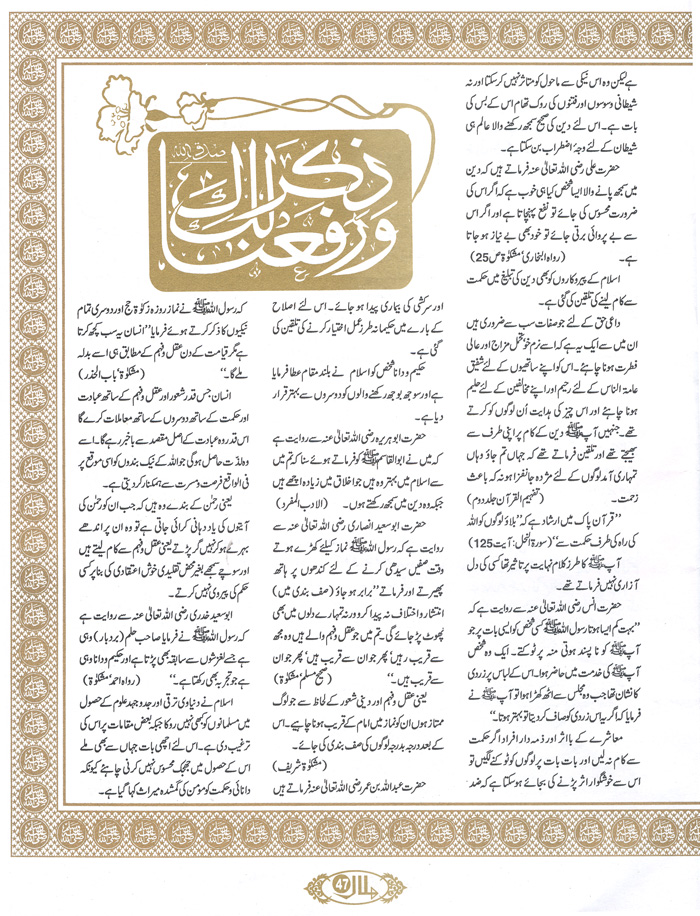 ورفعنا لک ذکرک
صدق اللہ
ہے لیکن وہ اس نیکی سے ماحول کو متاثر نہیں کر سکتا اور نہ
شیطانی وسوسوں اور فتنوں کی روک تھام اس کے بس کی
بات ہے۔ اس لئے دین کی صحیح سمجھ رکھنے والا عالم ہی
شیطان کے لئے وجۂ اضطراب بن سکتا ہے۔
حضرت علی رضی اللہ تعالیٰ عنہ فرماتے ہیں کہ دین
میں سمجھ پانے والا ایسا شخص کیا ہی خوب ہے کہ اگر اس کی
ضرورت محسوس کی جائے تو نفع پہنچاتا ہے اور اگر اس
سے بے پروائی برتی جائے تو خود بھی بے نیاز ہو جاتا
ہے۔ (رواہ البخاری‘ مشکوٰۃ ص 25)
اسلام کے پیروکاروں کو بھی دین کی تبلیغ میں حکمت
سے کام لینے کی تلقین کی گئی ہے۔
داعی حق کے لئے جو صفات سب سے ضروری ہیں
ان میں سے ایک یہ ہے کہ اسے نرم خو‘ متحمل مزاج اور عالی
ظرف ہونا چاہئے۔ اس کو اپنے ساتھیوں کے لئے شفیق
عامۃ الناس کے لئے رحیم اور اپنے مخالفین کے لئے حلیم
ہونا چاہئے اور اس چیز کی ہدایت اُن لوگوں کو کرتے
تھے۔ جنہیں آپ ﷺ دین کے کام پر اپنی طرف سے
بھیجتے تھے اور تلقین فرماتے تھے کہ جہاں تم جاؤ وہاں
تمہاری آمد لوگوں کے لئے مژدہ جانفزا ہو نہ کہ باعث
زحمت۔ (تفہیم القرآن جلد دوم)
”قرآن پاک میں ارشاد ہے کہ ”بلاؤ لوگوں کو اللہ
کی راہ کی طرف حکمت سے“ (سورۃ النحل: آیت 125)
آپ ﷺ کا طرز کلام نہایت پر تاثیر تھا کسی کی دل
آزاری نہیں فرماتے تھے۔
حضرت انس رضی اللہ تعالیٰ عنہ سے روایت ہے کہ
”بہت کم ایسا ہوتا رسول اللہ ﷺ کسی شخص کو ایسی بات پر جو
آپ ﷺ کو نا پسند ہوتی منہ پر ٹوکتے۔ ایک وہ شخص
آپ ﷺ کی خدمت میں حاضر ہوا۔ اس کے لباس پر زردی
کا نشان تھا جب وہ مجلس سے اٹھ کھڑا ہوا تو آپ ﷺ نے
فرمایا کہ اگر یہ اس زردی کو صاف کر دیتا تو بہتر ہوتا۔“
معاشرے کے با اثر اور ذمہ دار افراد اگر حکمت
سے کام نہ لیں اور بات بات پر لوگوں کو ٹوکنے لگیں تو
اس سے خوشگوار اثر پڑنے کی بجائے ہو سکتا ہے کہ ضد
اور سرکشی کی بیماری پیدا ہو جائے۔ اس لئے اصلاح
کے بارے میں حکیمانہ طرز عمل اختیار کرنے کی تلقین کی
گئی ہے۔
حکیم و دانا شخص کو اسلام نے بلند مقام عطا فرمایا
ہے اور سوجھ بوجھ رکھنے والوں کو دوسروں سے بہتر قرار
دیا ہے۔
حضرت ابو ہریرہ رضی اللہ تعالیٰ عنہ سے روایت ہے
کہ میں نے ابو القاسم ﷺ کو فرماتے ہوئے سنا کہ تم میں
اسلام میں بہتر وہ ہیں جو اخلاق میں زیادہ اچھے ہیں
جبکہ وہ دین میں سمجھ رکھتے ہوں۔ (الادب المفرد)
حضرت ابو سعید انصاری رضی اللہ تعالیٰ عنہ سے
روایت ہے کہ رسول اللہ ﷺ نماز کیلئے کھڑے ہوتے
وقت صفیں سیدھی کرنے کے لئے کندھوں پر ہاتھ
پھیرتے اور فرماتے ”برابر ہو جاؤ (صف بندی میں)
انتشار و اختلاف نہ پیدا کرو ورنہ تمہارے دلوں میں بھی
پھوٹ پڑ جائے گی۔ تم میں جو عقل و فہم والے ہیں وہ مجھ
سے قریب رہیں‘ پھر جو ان سے قریب ہیں‘ پھر جو ان
سے قریب ہیں۔“ (صحیح مسلم‘ مشکوٰۃ)
یعنی عقل و فہم اور دینی شعور کے لحاظ سے جو لوگ
ممتاز ہوں ان کو نماز میں امام کے قریب ہونا چاہئے۔ اس
کے بعد درجہ بدرجہ لوگوں کی صف بندی کی جائے۔
(مشکوٰۃ شریف)
حضرت عبداللہ بن عمر رضی اللہ تعالیٰ عنہ فرماتے ہیں
کہ رسول اللہ ﷺ نے نماز روزہ زکوٰۃ حج اور دوسری تمام
نیکیوں کا ذکر کرتے ہوئے فرمایا ”انسان یہ سب کچھ کرتا
ہے مگر قیامت کے دن عقل و فہم کے مطابق ہی اسے بدلہ
ملے گا۔“ (مشکوٰۃ‘ باب الحذر)
انسان جس قدر شعور اور عقل و فہم کے ساتھ عبادت
اور حکمت کے ساتھ دوسروں کے ساتھ معاملات کرے گا
اس قدر وہ عبادت کے اصل مقصد سے باخبر رہے گا۔ اسے
وہ لذت حاصل ہوگی جو اللہ کے نیک بندوں کو اسی موقع پر
فی الواقع فرحت و مسرت سے ہمکنار کر دیتی ہے۔
یعنی رحمٰن کے بندے وہ ہیں کہ جب ان کو رحمٰن کی
آیتوں کی یاد دہانی کرائی جاتی ہے تو وہ ان پر اندھے
بہرے ہو کر نہیں گر پڑتے یعنی عقل و فہم سے کام لیتے ہیں
اور سوچے سمجھے بغیر محض تقلیدی خوش اعتقادی کی بنا پر کسی
حکم کی پیروی نہیں کرتے۔
ابو سعید خدری رضی اللہ تعالیٰ عنہ سے روایت ہے
کہ رسول اللہ ﷺ نے فرمایا صاحب حلم (بردبار) وہی
ہے جسے لغزشوں سے سابقہ بھی پڑتا ہے اور حکیم و دانا وہی
ہے جو تجربہ بھی رکھتا ہے۔“ (رواہ احمد‘ مشکوٰۃ)
اسلام نے دنیاوی ترقی اور جدوجہد علوم کے حصول
میں مسلمانوں کو کبھی نہیں روکا جبکہ بعض مقامات پر اس کی
ترغیب دی ہے۔ اس لئے اچھی بات جہاں سے بھی ملے
اس کے حصول میں جھجک محسوس نہیں کرنی چاہئے کیونکہ
دانائی و حکمت کو مؤمن کی گمشدہ میراث کہا گیا ہے۔
ہلال 47